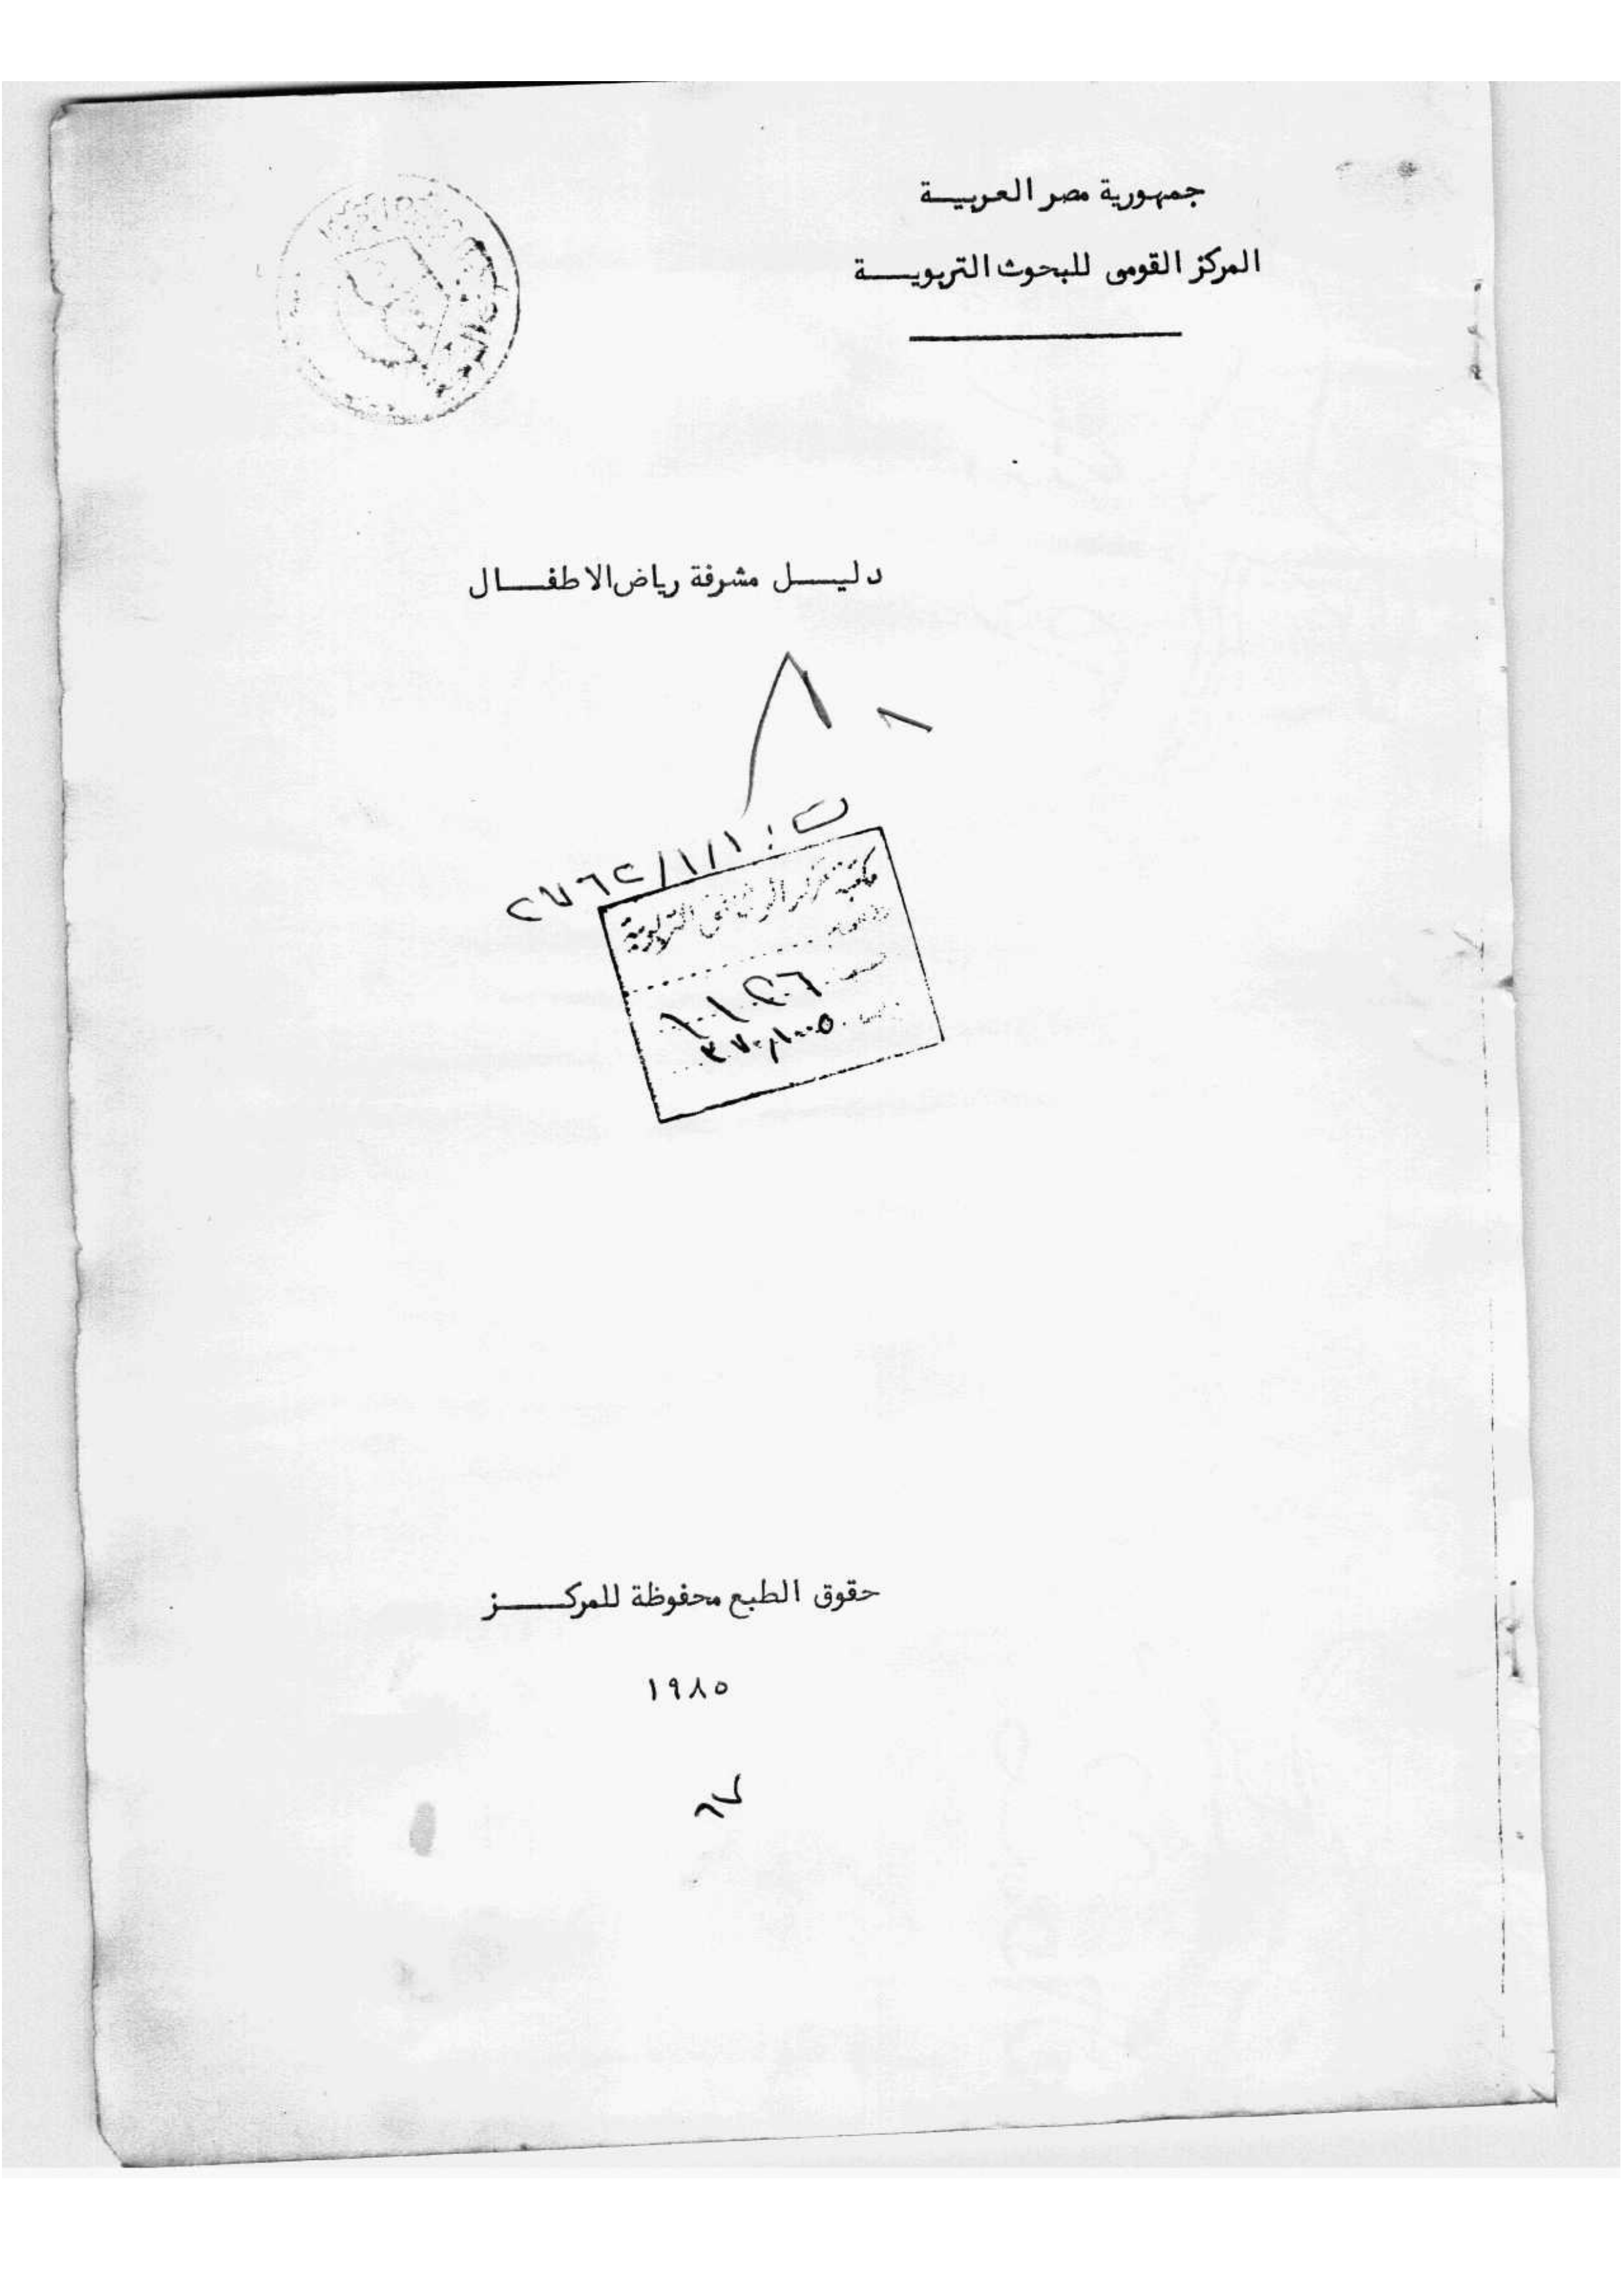 جمهورية مصر العربية
المركز القومى للبحوث التربوية
دليل مشرفة رياض الاطفال
ت: ٢٧٦٢/١/١
مكتبة التربوية
حقوق الطبع محفوظة للمركز
١٩٨٥